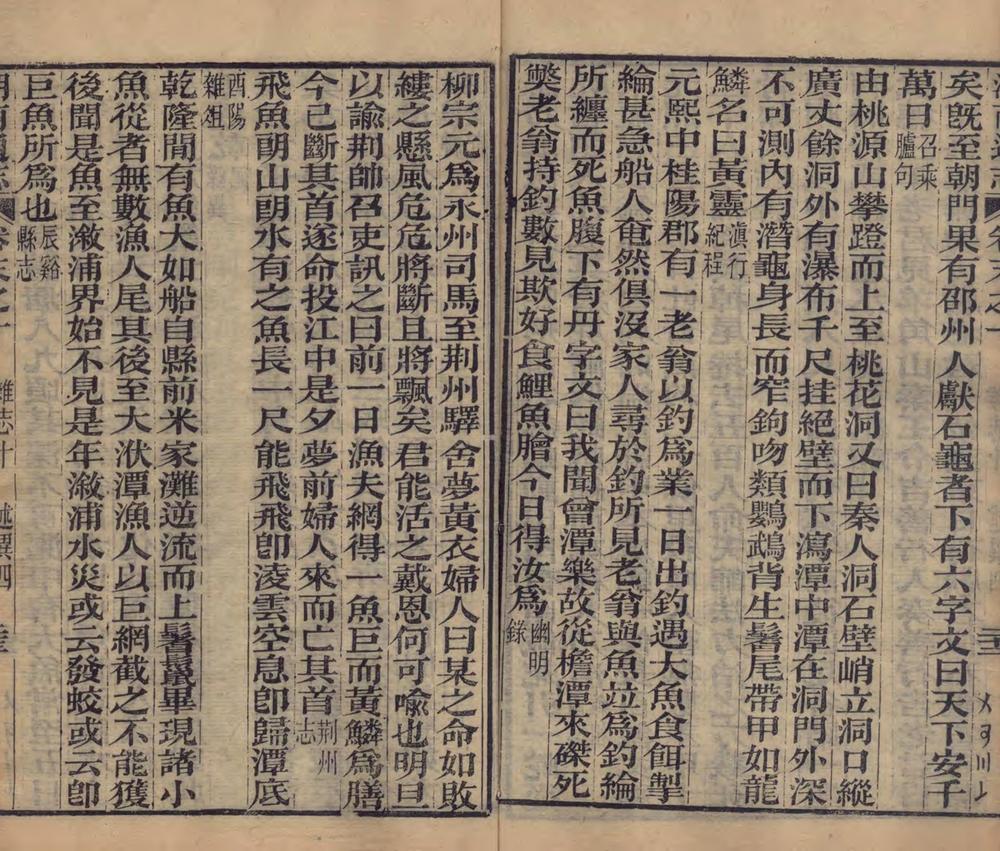 矣旣至朝門果有邵州人獻石龜者下有六字文曰天下安千
萬日召乘臚句
由桃源山攀蹬而上至桃花洞又曰秦人洞石壁峭立洞口縱
廣丈餘洞外有瀑布千尺挂絕壁而下瀉潭中潭在洞門外深
不可測內有潛龜身長而窄鉤吻類鸚鵡背生鬐尾帶甲如龍
鱗名曰黃靈滇行紀程
元熙中桂陽郡有一老翁以釣爲業一日出釣遇大魚食餌掣
綸甚急船人奄然俱沒家人尋於釣所見老翁與魚竝爲釣綸
所纏而死魚腹下有丹字文曰我聞曾潭樂故從檐潭來磔死
獘老翁持釣數見欺好食鯉魚膾今日得汝爲幽明錄
柳宗元爲永州司馬至荆州驛舍夢黃衣婦人曰某之命如敗
縷之懸風危危將斷且將飄矣君能活之戴恩何可喩也明旦
以諭荆帥召吏訊之曰前一日漁夫網得一魚巨而黃鱗爲膳
今已斷其首遂命投江中是夕夢前婦人來而亡其首荆州志
飛魚朗山朗水有之魚長一尺能飛飛卽淩雲空息卽歸潭底
酉陽雜俎
乾隆閒有魚大如船自縣前米家灘逆流而上鬐鬛畢現諸小
魚從者無數漁人尾其後至大洑潭漁人以巨網截之不能獲
後聞是魚至漵浦界始不見是年漵浦水災或云發蛟或云卽
巨魚所爲也辰谿縣志
雜志十 述撰四